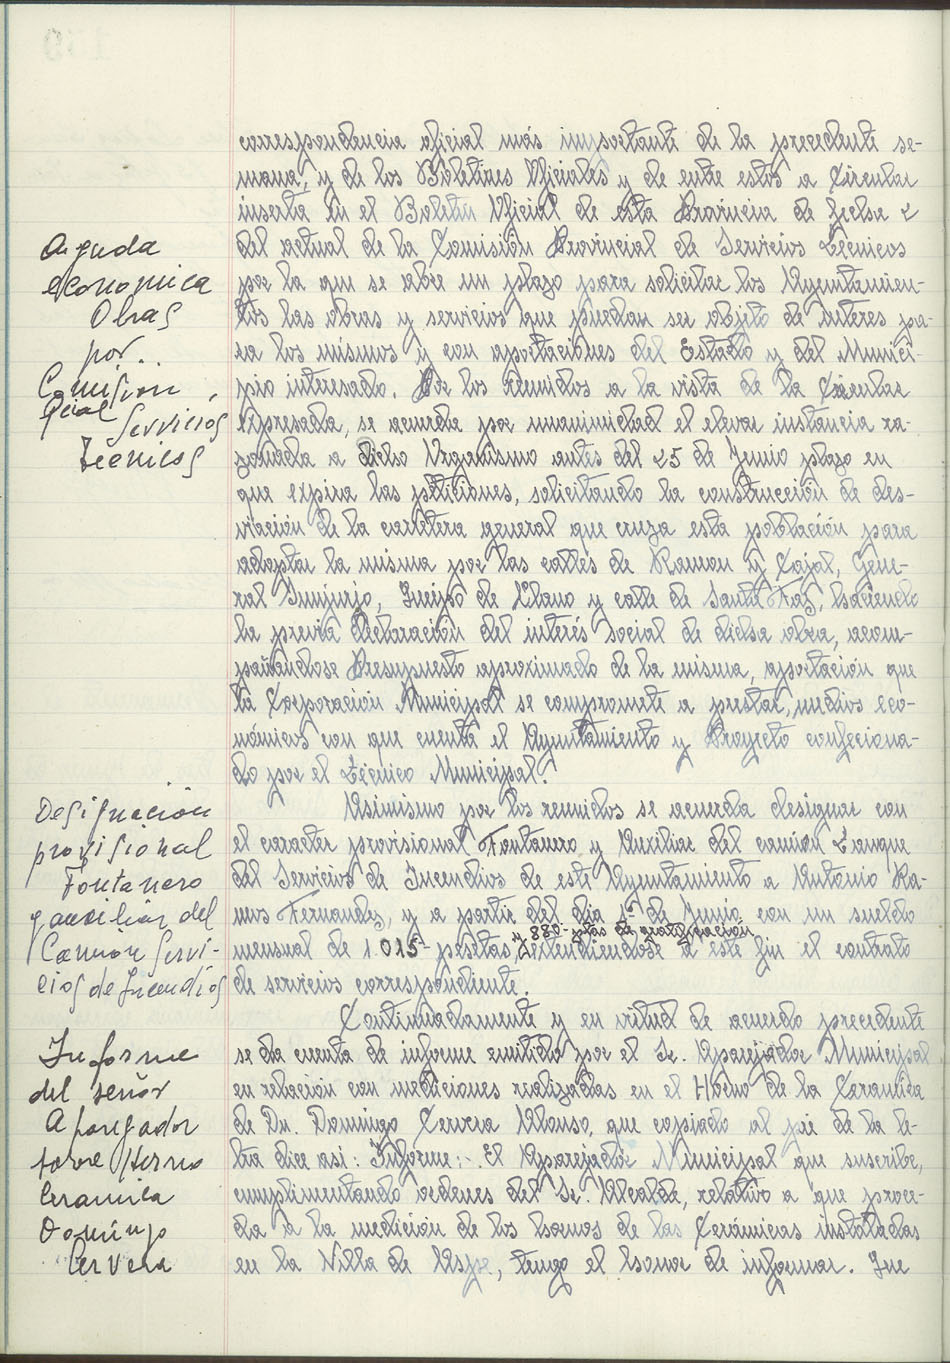 correspondencia oficial más importante de la precedente se-
mana, y de los Boletines Oficiales y de entre estos a Circular
inserta en el Boletín Oficial de esta Provincia de fecha 2
del actual de la Comisión Provincial de Servicios Técnicos
por la que se abre un plazo para solicitar los Ayuntamien-
tos las obras y servicios que puedan ser objeto de interes pa-
ra los mismos y con aportaciones del Estado y del Munici-
pio interesado. Por los reunidos a la vista de la Circular
expresada, se acuerda por unanimidad el elevar instancia ra-
zonada a dicho Organismo antes del 25 de Junio plazo en
que expira las peticiones, solicitando la construcción de des-
viación de la carretera general que cruza esta población para
adaptar la misma por las calles de Ramon y Cajal, Gene-
ral Sanjurjo, Queipo de Llano y calle de Santa Faz, haciendo
la previa Declaración del interés social de dicha obra, acom-
pañandose Presupuesto aproximado de la misma, aportación que
la Corporación Municipal se compromete a prestar, medios eco-
nómicos con que cuenta el Ayuntamiento y Proyecto confecciona-
do por el Técnico Municipal.
Asimismo por los reunidos se acuerda designar con
el caracter provisional Fontanero y Auxiliar del camión Tanque
del Servicio de Incendios de este Ayuntamiento a Antonio Ra-
mos Fernandez, y a partir del dia 1º de Junio con un sueldo
y 880- ptas de gratificación
mensual de 1.015- pesetas, extendiendose a este fin el contrato
de servicios correspondiente.
Continuadamente y en virtud de acuerdo precedente
se da cuenta de informe emitido por el Sr. Aparejador Municipal
en relación con mediciones realizadas en el Horno de la Ceramica
de Dn. Domingo Cervera Alonso, que copiado al pie de la le-
tra dice asi: Informe:-. El Aparejador Municipal que suscribe,
cumplimentando ordenes del Sr. Alcalde, relativo a que proce-
da a la medición de los hornos de las Cerámicas instaladas
en la Villa de Aspe, tengo el honor de informar. Que
Ayuda
economica
Obras
por
Comisión
Pcial Servicios
Tecnicos
Designación
provisional
Fontanero
y auxiliar del
Camión Servi-
cios de Incendios
Informe
del señor
Aparejador
sobre Horno
Ceramica
Domingo
Cervera